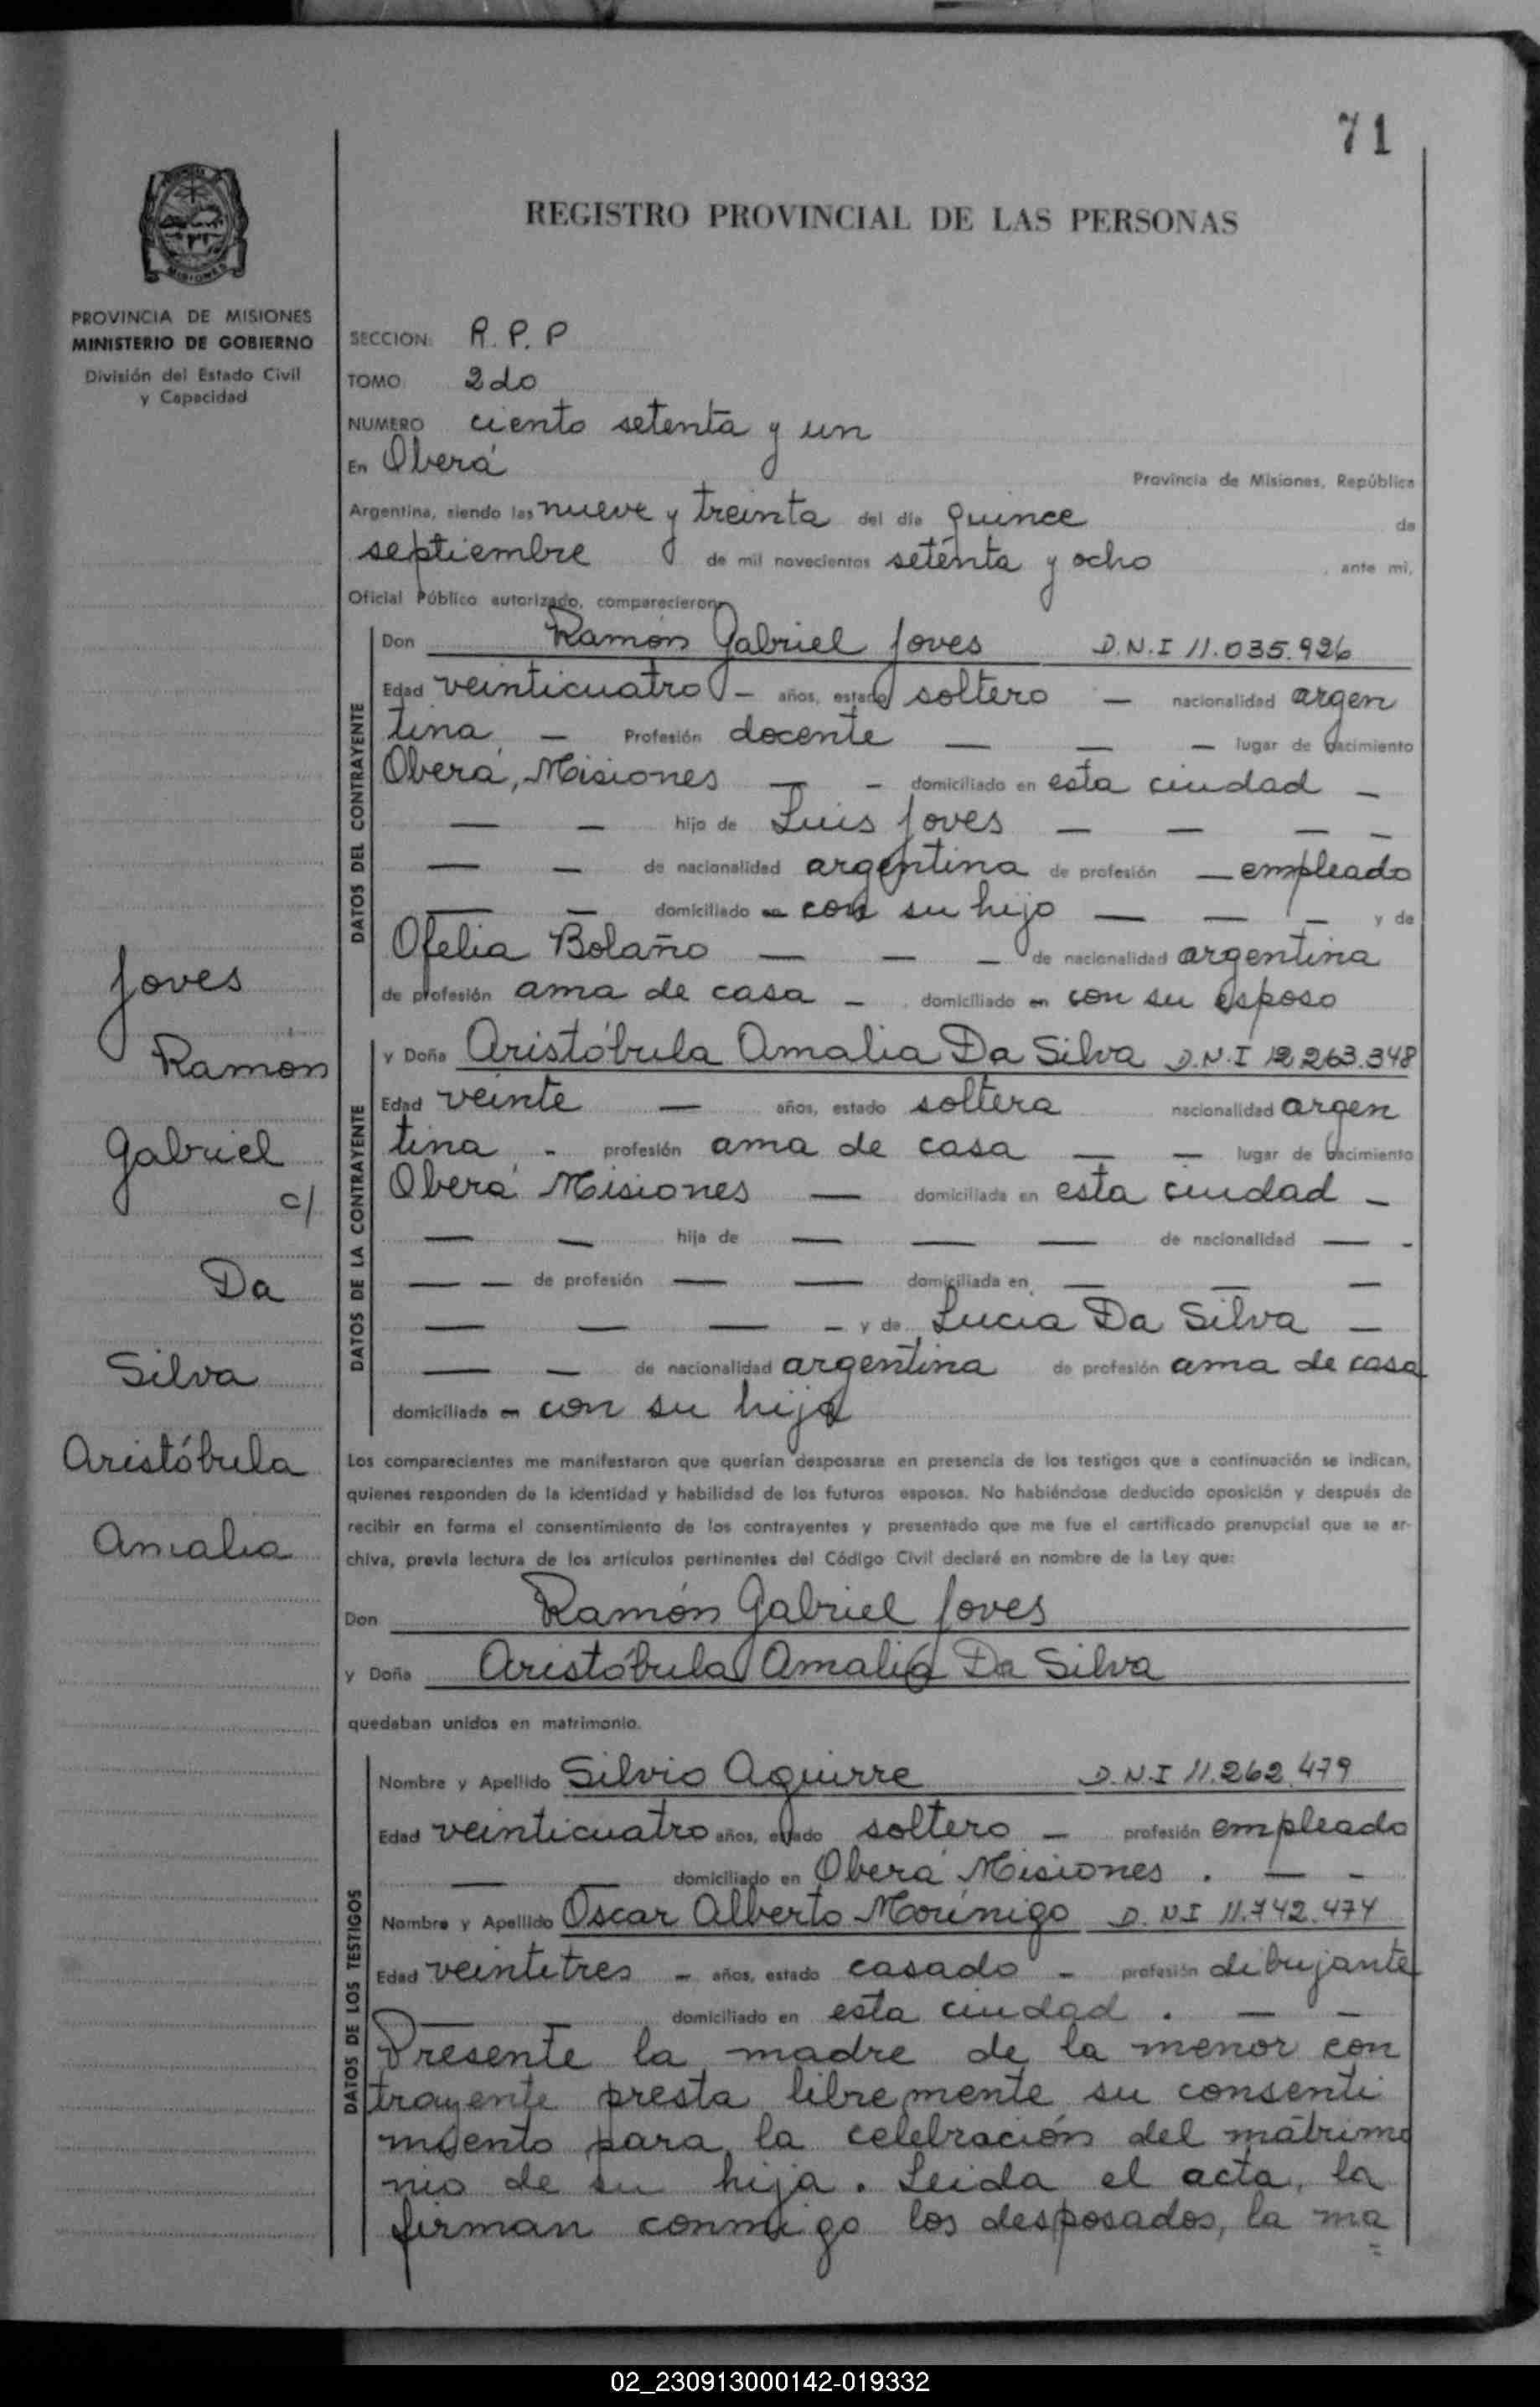 71
REGISTRO PROVINCIAL DE LAS PERSONAS
MISIONES
PROVINCIA DE MISIONES
MINISTERIO DE GOBIERNO
División del Estado Civil
y Capacidad
SECCION: R.P.P
TOMO 2do
NUMERO ciento setenta y un
En Oberá Provincia de Misiones, República
Argentina, siendo las nueve y treinta del día quince de
septiembre de mil novecientos setenta y ocho , ante mí,
Oficial Público autorizado, comparecieron:
DATOS DEL CONTRAYENTE
Don Ramón Gabriel Joves D.N.I 11.035.926
Edad veinticuatro - años, estado soltero - nacionalidad argen
tina, - Profesión docente - - - lugar de nacimiento
Oberá, Misiones - - domiciliado en esta ciudad -
- - hijo de Luis Joves - - - -
- - de nacionalidad argentina de profesión - empleado
- - domiciliado en con su hijo - - - y de
Ofelia Bolaño - - - de nacionalidad argentina
de profesión ama de casa - domiciliado en con su esposo
DATOS DE LA CONTRAYENTE
y Doña Aristóbula Amalia Da Silva D.N.I 12.263.348
Edad veinte - años, estado soltera nacionalidad argen
tina, - profesión ama de casa - - lugar de nacimiento
Oberá Misiones - domiciliada en esta ciudad -
- - hija de - - - de nacionalidad - -
- - de profesión - - domiciliada en - - -
- - - - y de Lucia Da Silva -
- - de nacionalidad argentina de profesión ama de casa
domiciliada en con su hija
Los comparecientes me manifestaron que querían desposarse en presencia de los testigos que a continuación se indican,
quienes responden de la identidad y habilidad de los futuros esposos. No habiéndose deducido oposición y después de
recibir en forma el consentimiento de los contrayentes y presentado que me fue el certificado prenupcial que se ar-
chiva, previa lectura de los artículos pertinentes del Código Civil declaré en nombre de la Ley que:
Don Ramón Gabriel Joves
y Doña Aristóbula Amalia Da Silva
quedaban unidos en matrimonio.
DATOS DE LOS TESTIGOS
Nombre y Apellido Silvio Aguirre D.N.I 11.262.479
Edad veinticuatro años, estado soltero - profesión empleado
- - domiciliado en Oberá Misiones . - -
Nombre y Apellido Oscar Alberto Morínigo D.NI 11.742.474
Edad veintitres - años, estado casado - profesión dibujante
- - domiciliado en esta ciudad . - -
Presente la madre de la menor con
trayente presta libremente su consenti
miento para la celebración del matrimo
nio de su hija. Leida el acta, la
firman conmigo los desposados, la ma
=
Joves
Ramon
Gabriel
c/
Da
Silva
Aristóbula
Amalia
02_230913000142-019332